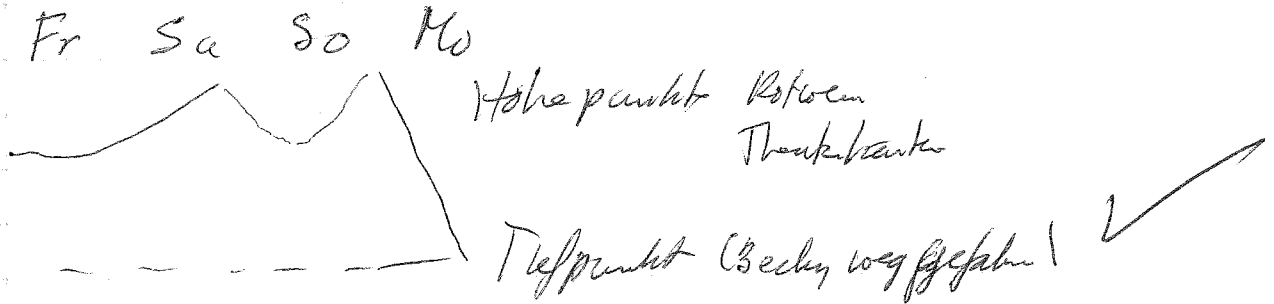 Fr Sa So Mo
Höhepunkt Rotwein
Theaterkarten
Tiefpunkt (Becky weggefahren)